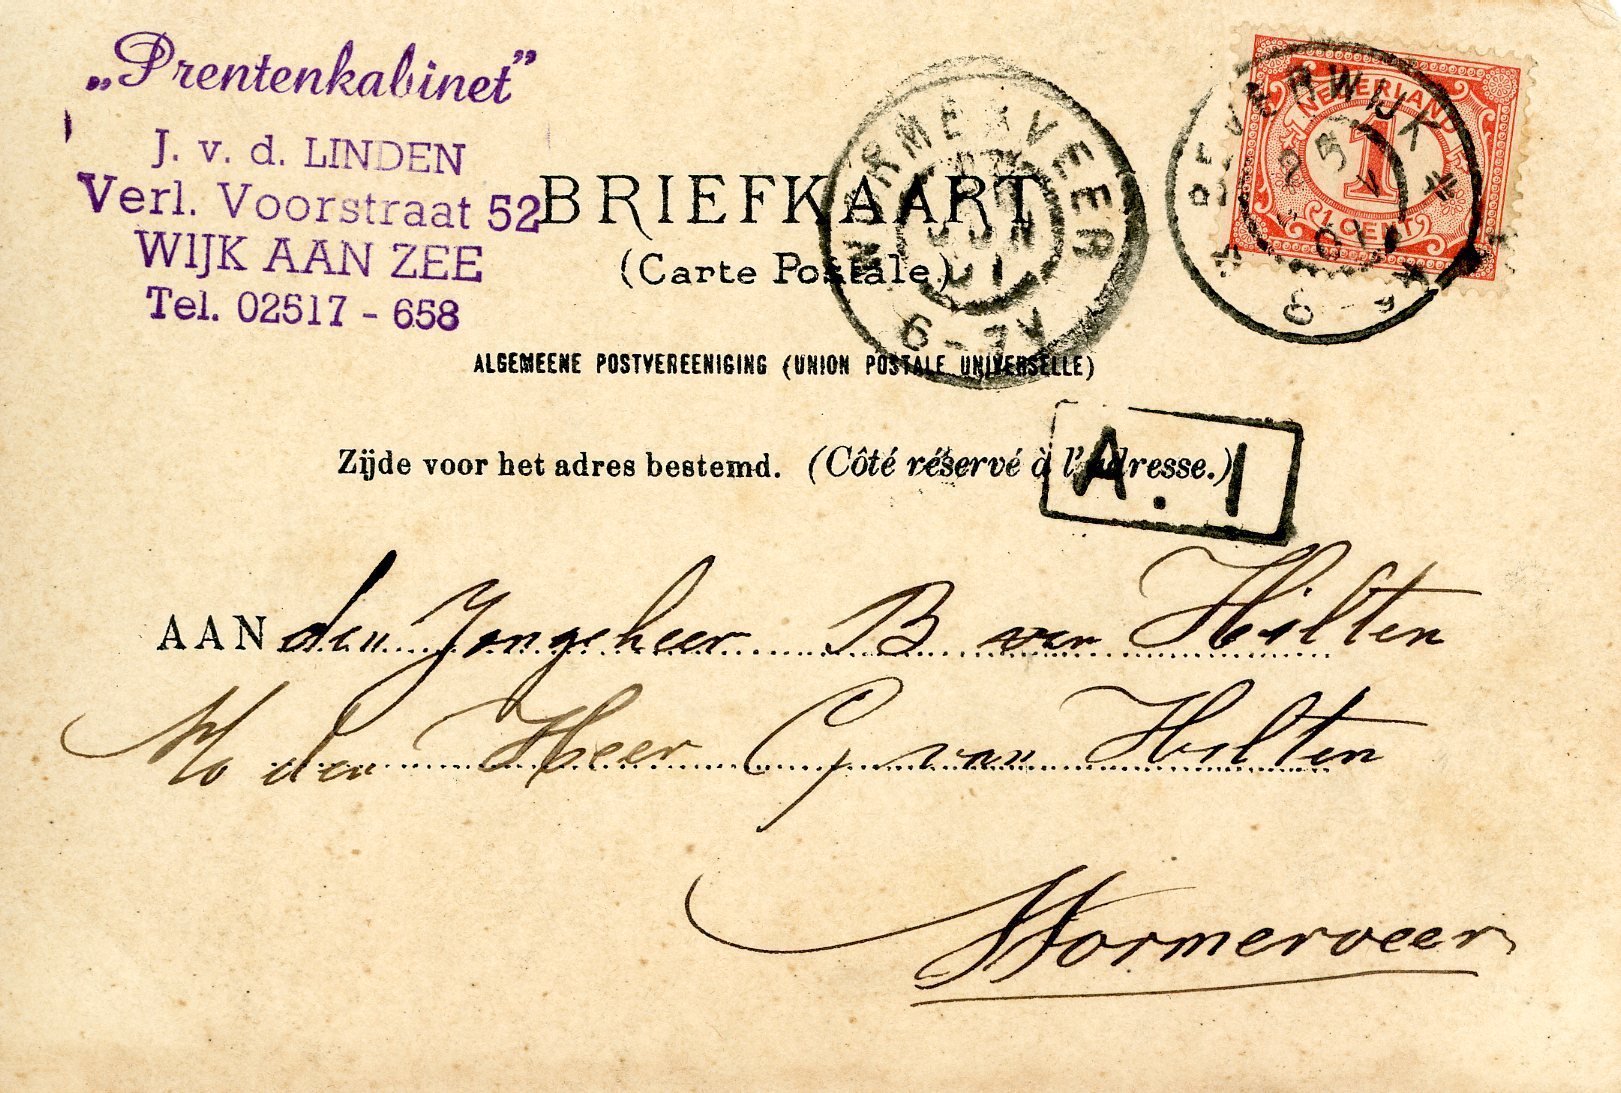 „Prentenkabinet”
J. v. d. LINDEN
Verl. Voorstraat 52
WIJK AAN ZEE
Tel. 02517 - 658
BRIEFKAART
(Carte Postale.)
ALGEMEENE POSTVEREENIGING (UNION POSTALE UNIVERSELLE)
Zijde voor het adres bestemd. (Côté réservé à l'adresse.)
WORMERVEER
6-7V
BEVERWIJK
NEDERLAND
1
1 CENT
A. I
AAN den Jongeheer B van Hilten
den Heer C van Hilten
Wormerveer